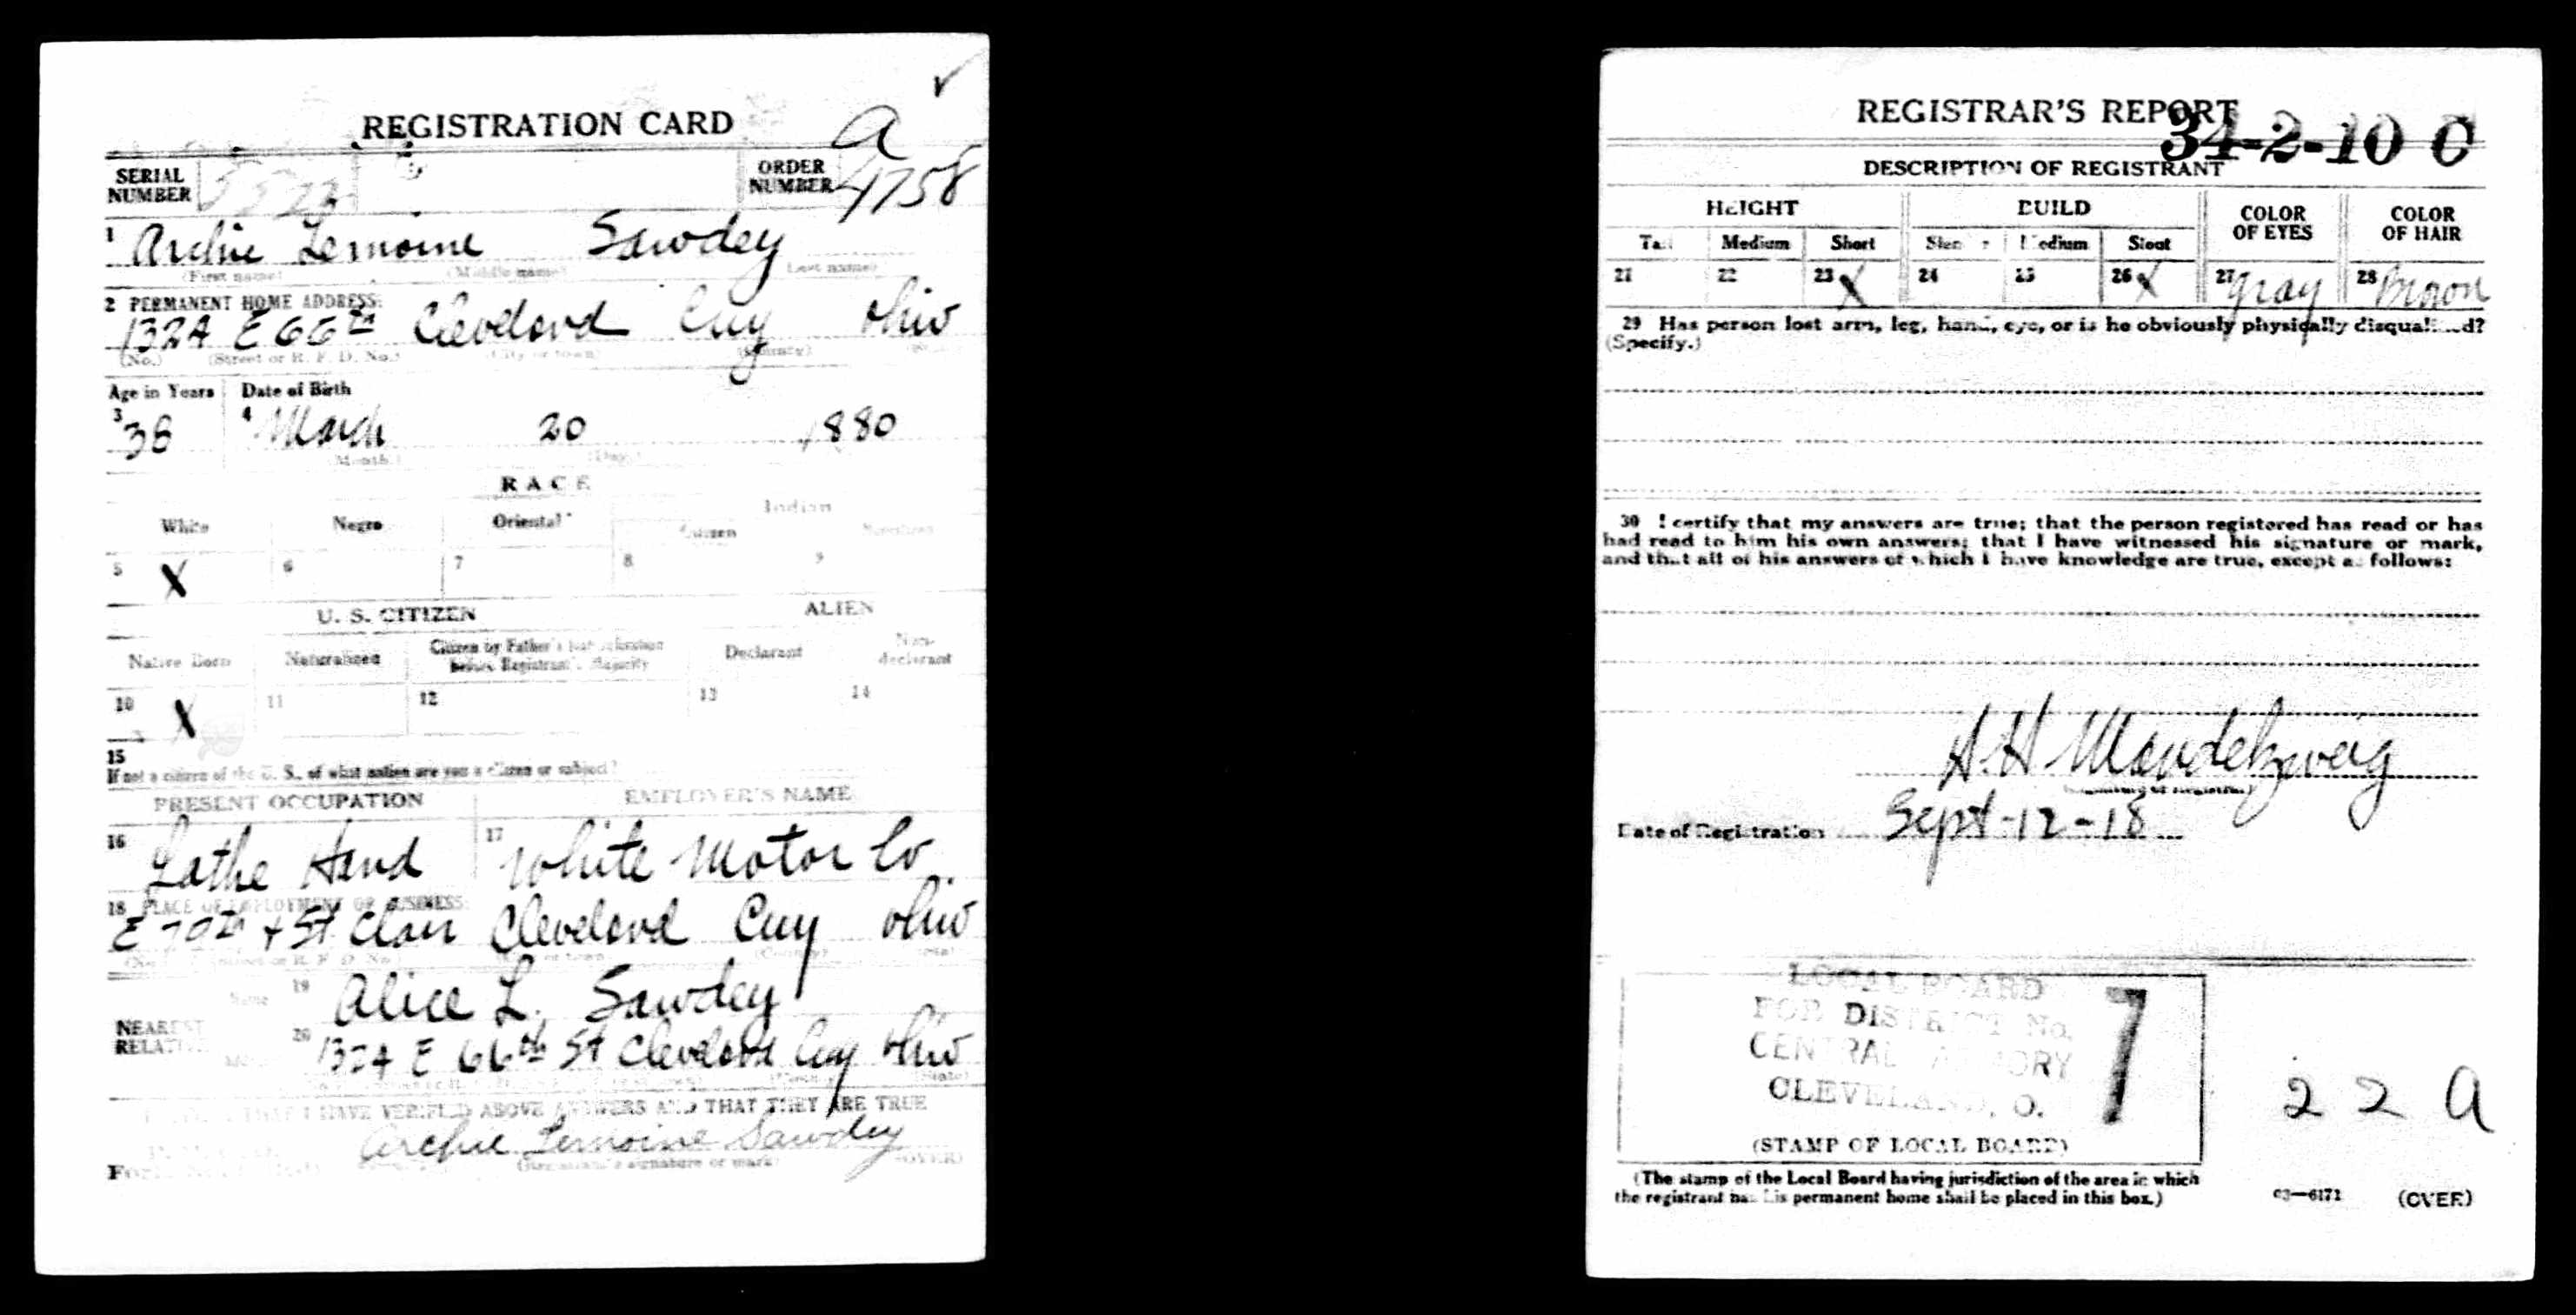 ✓
REGISTRATION CARD a
SERIAL NUMBER ORDER NUMBER 4758
1 Archie Lemoine Sawdey
(First name) (Middle name) (Last name)
2 PERMANENT HOME ADDRESS:
1324 E 66th Cleveland Cuy Ohio
(No.) (Street or R. F. D. No.) (City or town) (County)
Age in Years Date of Birth
3 38 4 March 20 1880
(Month.) (Day.)
RACE
White Negro Oriental Indian
Citizen
5 X 6 7 8 9
U. S. CITIZEN ALIEN
Native Born Naturalized Citizen by Father's Naturalization before Registrant's Majority Declarant Non-declarant
10 X 11 12 13 14
15
If not a citizen of the U. S., of what nation are you a citizen or subject?
PRESENT OCCUPATION EMPLOYER'S NAME
16 Lathe Hand 17 White Motor Co
18 PLACE OF EMPLOYMENT OR BUSINESS:
E 79th + St Clair Cleveland Cuy Ohio
(No.) (Street or R. F. D. No.) (City or town) (County) (State)
Name 19 Alice L. Sawdey
NEAREST RELATIVE 20 1324 E 66th St Cleveland Cuy Ohio
(State)
THAT I HAVE VERIFIED ABOVE ANSWERS AND THAT THEY ARE TRUE
Archie Lemoine Sawdey
(Registrant's signature or mark) (OVER)
REGISTRAR'S REPORT
34-2-10 C
DESCRIPTION OF REGISTRANT
HEIGHT BUILD COLOR OF EYES COLOR OF HAIR
Tall Medium Short Slender Medium Stout
21 22 23 X 24 25 26 X 27 Gray 28 Brown
29 Has person lost arm, leg, hand, eye, or is he obviously physically disqualified?
(Specify.)
30 I certify that my answers are true; that the person registered has read or has
had read to him his own answers; that I have witnessed his signature or mark,
and that all of his answers of which I have knowledge are true, except as follows:
A. H. Mandelzweig
(Signature of Registrar)
Date of Registration Sept-12-18
LOCAL BOARD
FOR DISTRICT No. 7
CENTRAL ARMORY
CLEVELAND, O.
2 2 a
(STAMP OF LOCAL BOARD)
(The stamp of the Local Board having jurisdiction of the area in which
the registrant has his permanent home shall be placed in this box.)
03—6171 (OVER)